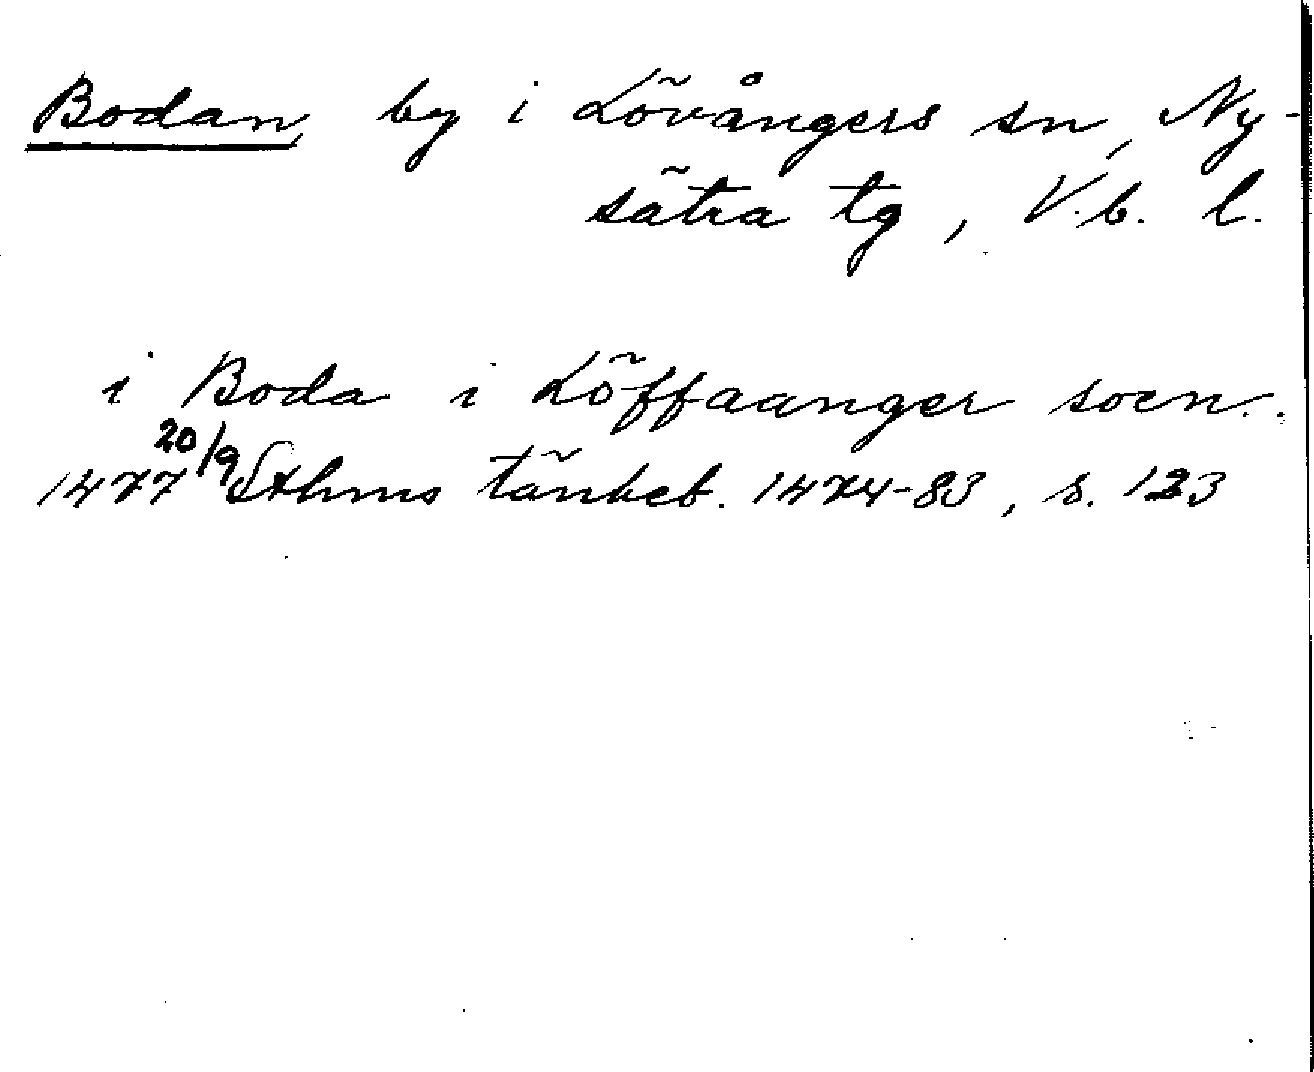 Bodan by i Lövångers sn, Ny-
sätra tg, V.b. l.
i Boda i Löffaanger soen.
1477 20/9 Sthms tänkeb. 1474-83, s. 123